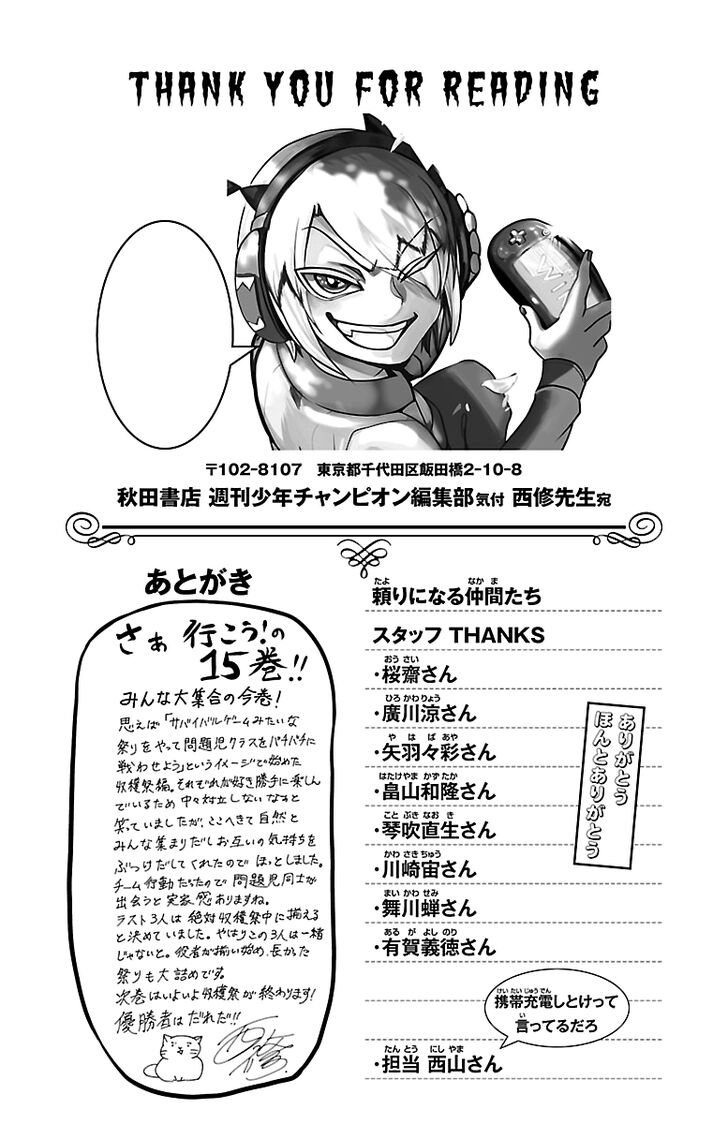 THANK YOU FOR READING
WIN
〒102-8107　東京都千代田区飯田橋2-10-8
秋田書店 週刊少年チャンピオン編集部気付 西修先生宛
あとがき
さぁ 行こう!の
15巻!!
みんな大集合の今巻!
思えば「サバイバルゲームみたいな
祭りをやって問題児クラスをバチバチに
戦わせよう」というイメージで始めた
収穫祭編。それぞれが好き勝手に楽しん
でいるため 中々対立しないなぁと
笑っていましたが、ここへきて自然と
みんな集まりだしお互いの気持ちを
ぶつけだしてくれたので ほっとしました。
チーム行動だったので 問題児同士が
出会うと実家感ありますね。
ラスト3人は 絶対収穫祭中に揃える
と決めていました。やはりこの3人は一緒
じゃないと。役者が揃い始め、長かった
祭りも大詰めです。
次巻はいよいよ収穫祭が終わります!
優勝者はだれだ!!
西修
頼りになる仲間たち
たよ なかま
スタッフ THANKS
・桜齋さん
おうさい
・廣川涼さん
ひろかわりょう
・矢羽々彩さん
やはばあや
・畠山和隆さん
はたけやまかずたか
・琴吹直生さん
ことぶきなおき
・川崎宙さん
かわさきちゅう
・舞川蝉さん
まいかわせみ
・有賀義徳さん
あるがよしのり
ありがとう
ほんとありがとう
携帯充電しとけって
けいたいじゅうでん
言ってるだろ
い
・担当 西山さん
たんとう にしやま